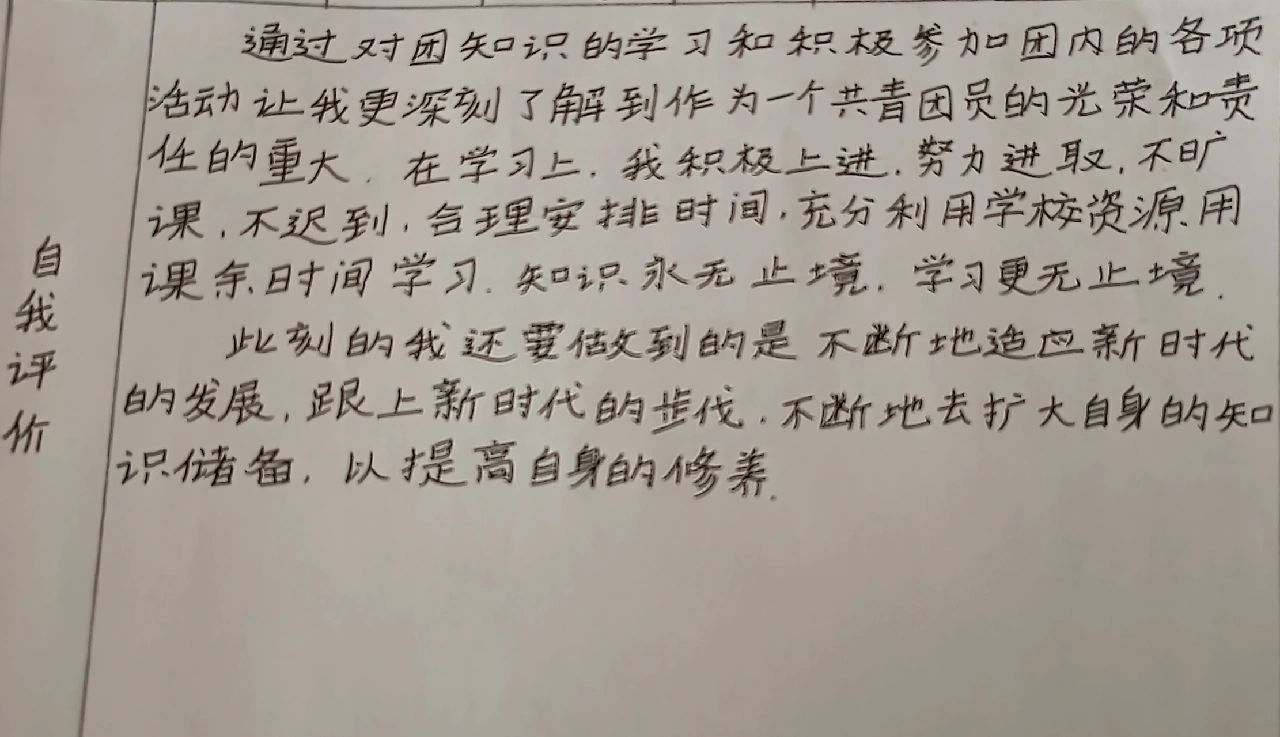 自我评价
通过对团知识的学习和积极参加团内的各项
活动让我更深刻了解到作为一个共青团员的光荣和责
任的重大.在学习上.我积极上进.努力进取,不旷
课,不迟到,合理安排时间,充分利用学校资源.用
课余时间学习.知识永无止境.学习更无止境.
此刻的我还要做到的是不断地适应新时代
的发展,跟上新时代的步伐.不断地去扩大自身的知
识储备,以提高自身的修养.